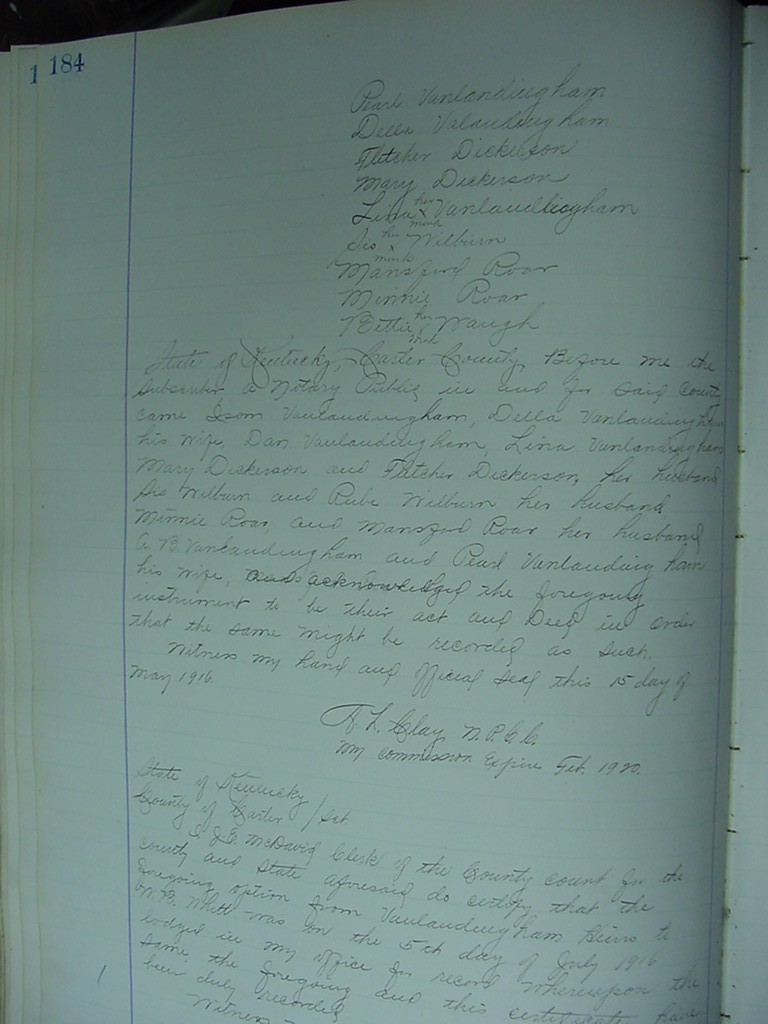 1 184
Pearl Vanlandingham
Della Valandingham
Fletcher Dickerson
Mary Dickerson
her
Lina x Vanlandingham
mark
her
Sis x Wilburn
mark
Mansford Roar
Minnie Roar
her
Bettie Waugh
State of Kentucky, Carter County, Before me the
subscriber a Notary Public in and for said County
came Isom Vanlandingham, Della Vanlandingham
his wife, Dan Vanlandingham, Lina Vanlandingham
Mary Dickerson and Fletcher Dickerson, her husband
Sis Wilburn and Rube Wilburn her husband
Minnie Roar, and Mansford Roar her husband
A. B. Vanlandingham and Pearl Vanlandingham
his wife, and acknowledged the foregoing
instrument to be their act and Deed in order
that the same might be recorded as such.
Witness my hand and official seal this 15 day of
May 1916.
L. Clay, N.P.C.C.
my commission Expires Feb. 1920.
State of Kentucky
County of Carter / Sct
I J.E. McDavid Clerk of the County Court for the
county and State aforesaid do certify that the
foregoing option from Vanlandingham Heirs to
W.B. Whitt was on the 5th day of July 1916
lodged in my office for record whereupon the
same, the foregoing and this certificate have
been duly recorded
Witness